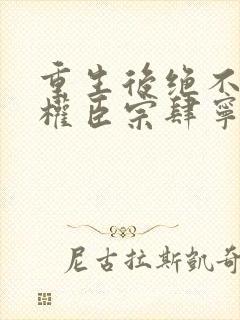 重生後绝不
權臣宗肆寧
尼古拉斯凱奇